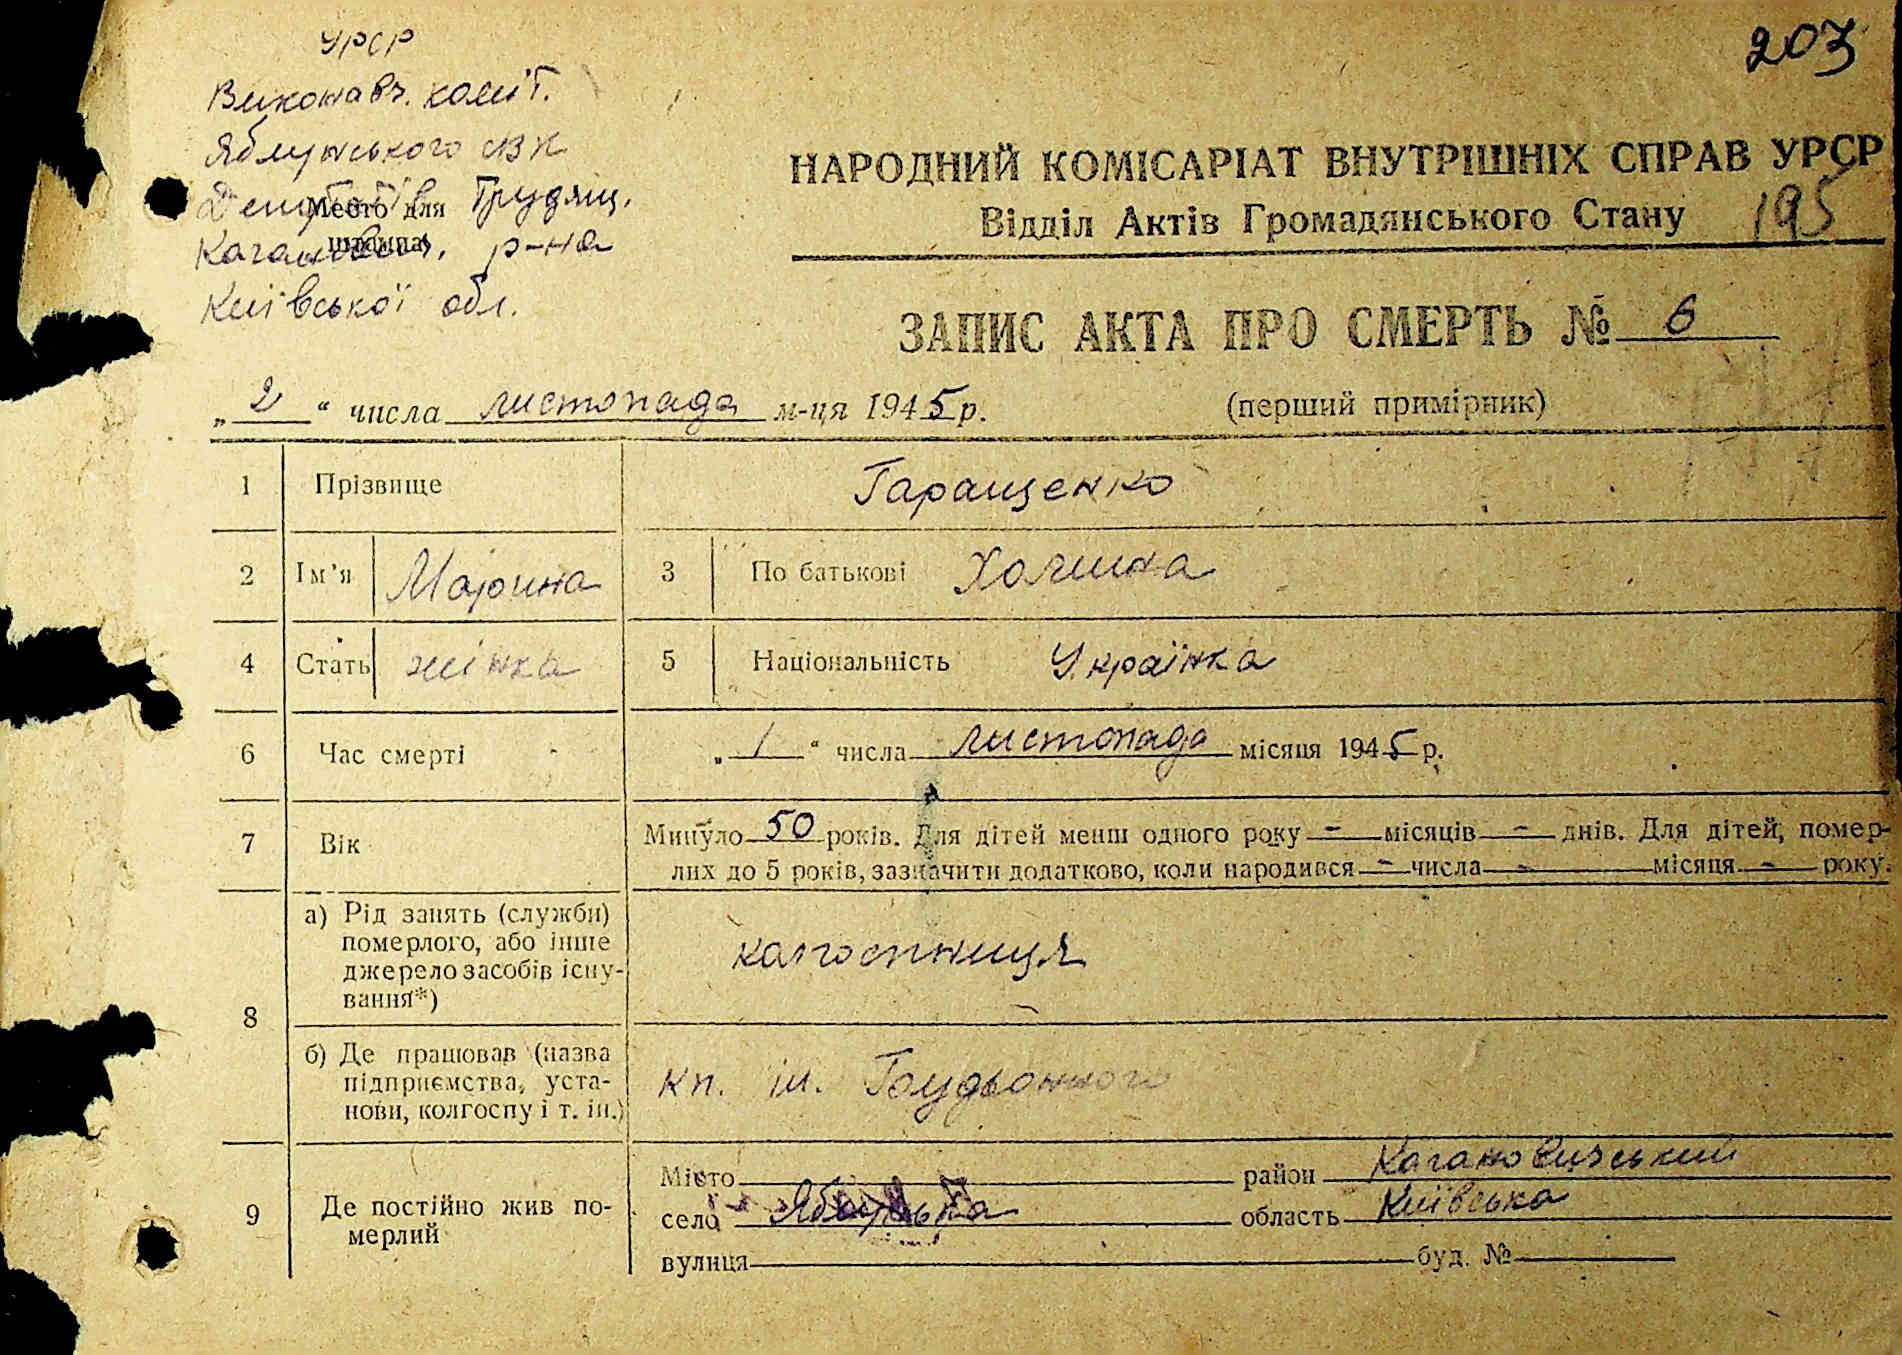 УРСР
203
Виконавч. коміт.
Яблунського
Депутатів Трудящ.
Место для
штампа
Каганович. р-на
Київської обл.
НАРОДНИЙ КОМІСАРІАТ ВНУТРІШНІХ СПРАВ УРСР
Відділ Актів Громадянського Стану 195
ЗАПИС АКТА ПРО СМЕРТЬ № 6
„ 2 “ числа листопада м-ця 1945 р. (перший примірник)
1 Прізвище Гаращенко
2 Ім'я Марина 3 По батькові
4 Стать жінка 5 Національність Українка
6 Час смерті „ 1 “ числа листопада місяця 1945 р.
7 Вік Минуло 50 років. Для дітей менш одного року - місяців - днів. Для дітей, помер-
лих до 5 років, зазначити додатково, коли народився - числа - місяця - року.
8 а) Рід занять (служби)
померлого, або інше
джерело засобів існу-
вання*)
колгоспниця
б) Де працював (назва
підприємства, уста-
нови, колгоспу і т. ін.)
кп. ім. Будьонного
9 Де постійно жив по-
мерлий
Місто район Кагановичський
село Яблунька область Київська
вулиця буд. №